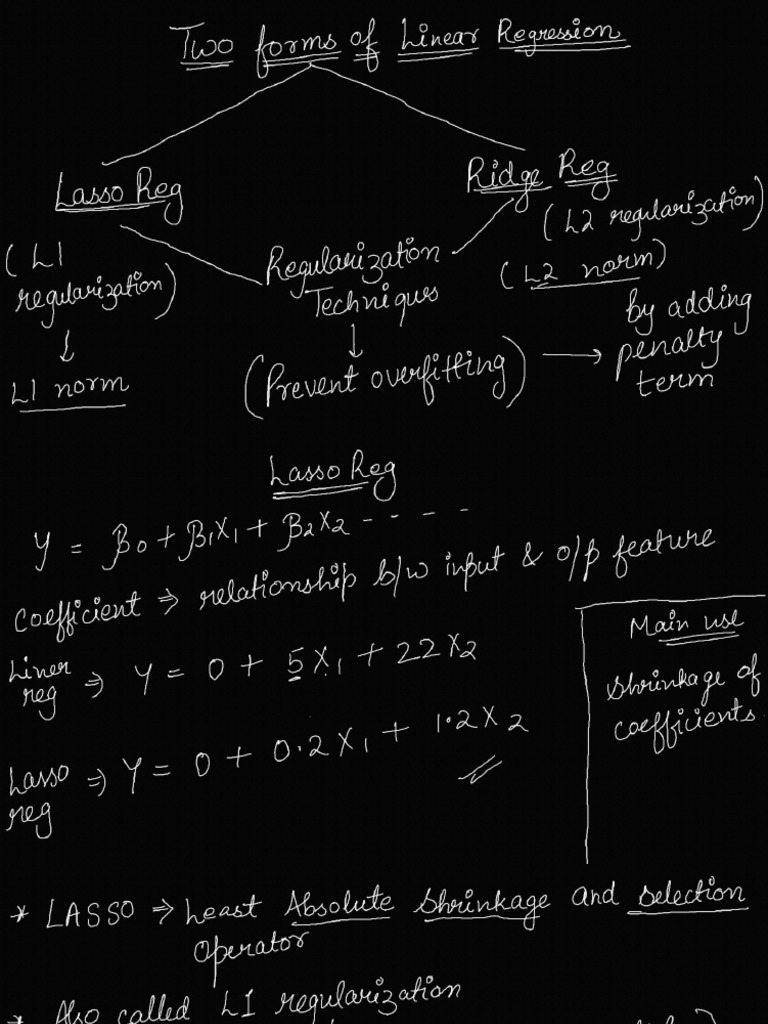 Two forms of Linear Regression
Lasso Reg
Ridge Reg
(L1 regularization)
↓
L1 norm
Regularization
Techniques
↓
(Prevent overfitting) →
(L2 regularization)
(L2 norm)
by adding
penalty
term
Lasso Reg
Y = β0 + β1X1 + β2X2 - - - -
Coefficient ⇒ relationship b/w input & o/p feature
Liner reg ⇒ Y = 0 + 5X1 + 22X2
Lasso reg ⇒ Y = 0 + 0.2X1 + 1.2X2
Main use
Shrinkage of
coefficients.
* LASSO ⇒ Least Absolute Shrinkage and Selection
Operator
* Also called L1 regularization